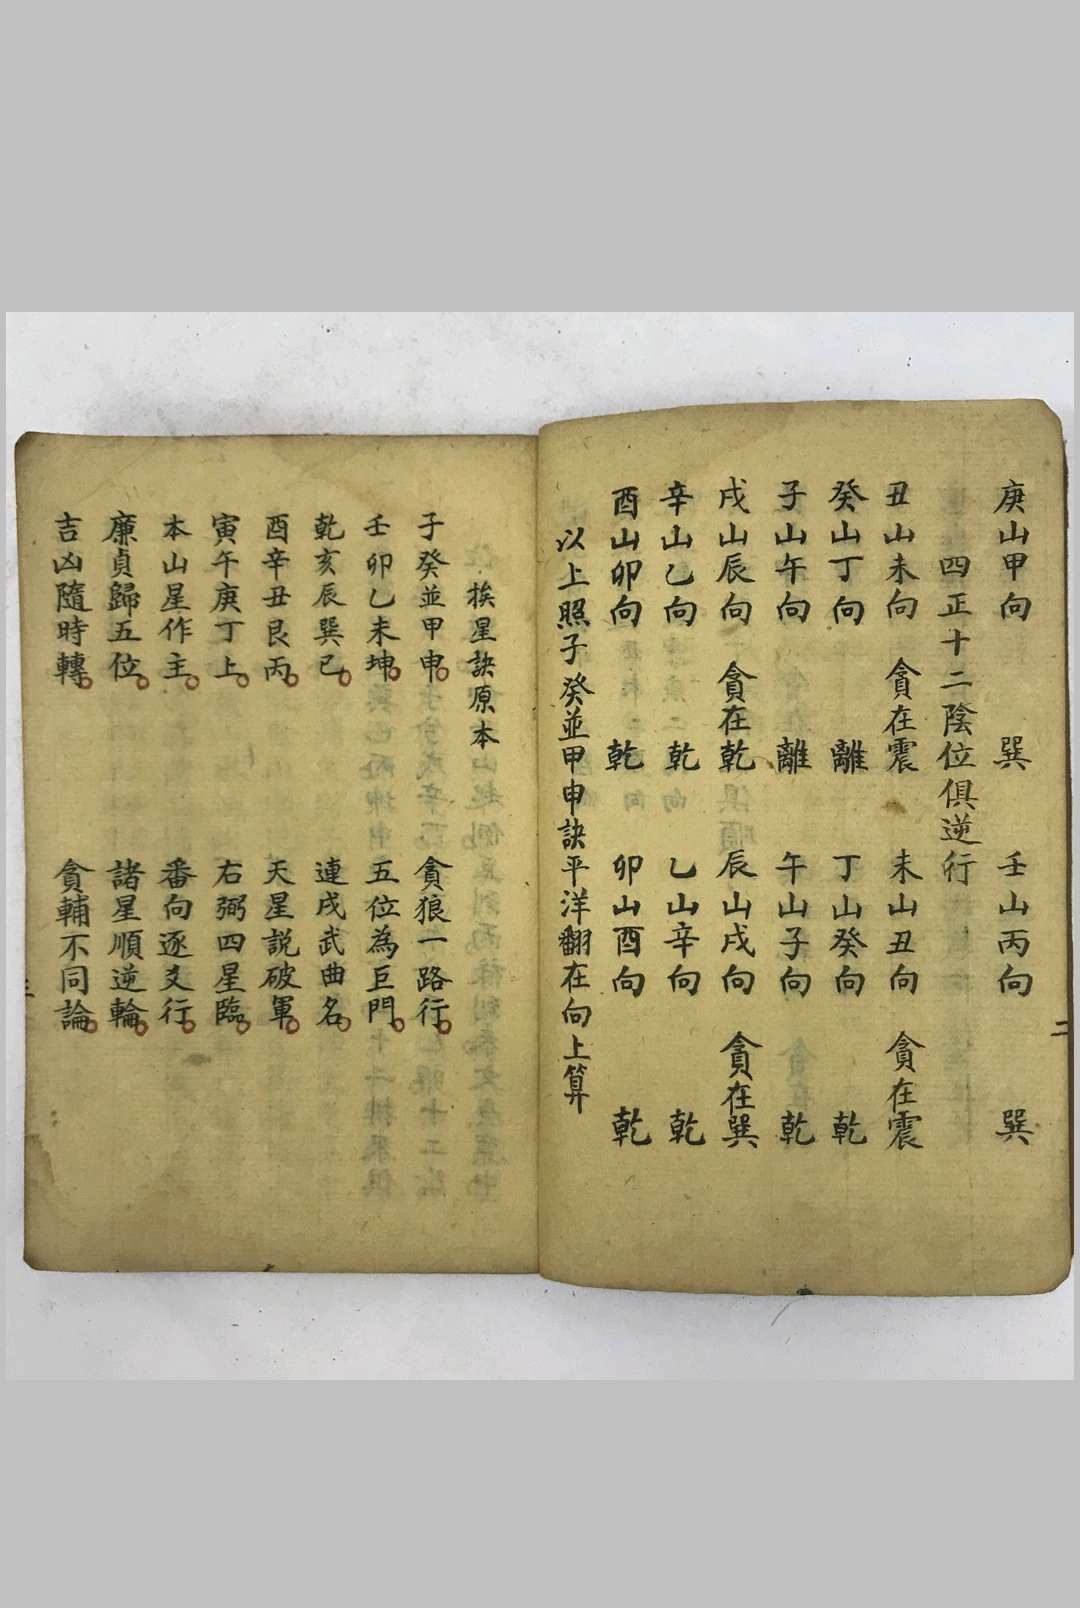 庚山甲向 巽 壬山丙向 巽
四正十二陰位俱逆行
丑山未向 貪在震 未山丑向 貪在震
癸山丁向 離 丁山癸向 乾
子山午向 離 午山子向 乾
戌山辰向 貪在乾 辰山戌向 貪在巽
辛山乙向 乾 乙山辛向 乾
酉山卯向 乾 卯山酉向 乾
以上照子癸並甲申訣平洋翻在向上算
二
挨星訣原本
子癸並甲申 貪狼一路行
壬卯乙未坤 五位為巨門
乾亥辰巽巳 連戌武曲名
酉辛丑艮丙 天星説破軍
寅午庚丁上 右弼四星臨
本山星作主 番向逐爻行
廉貞歸五位 諸星順逆輪
吉凶隨時轉 貪輔不同論